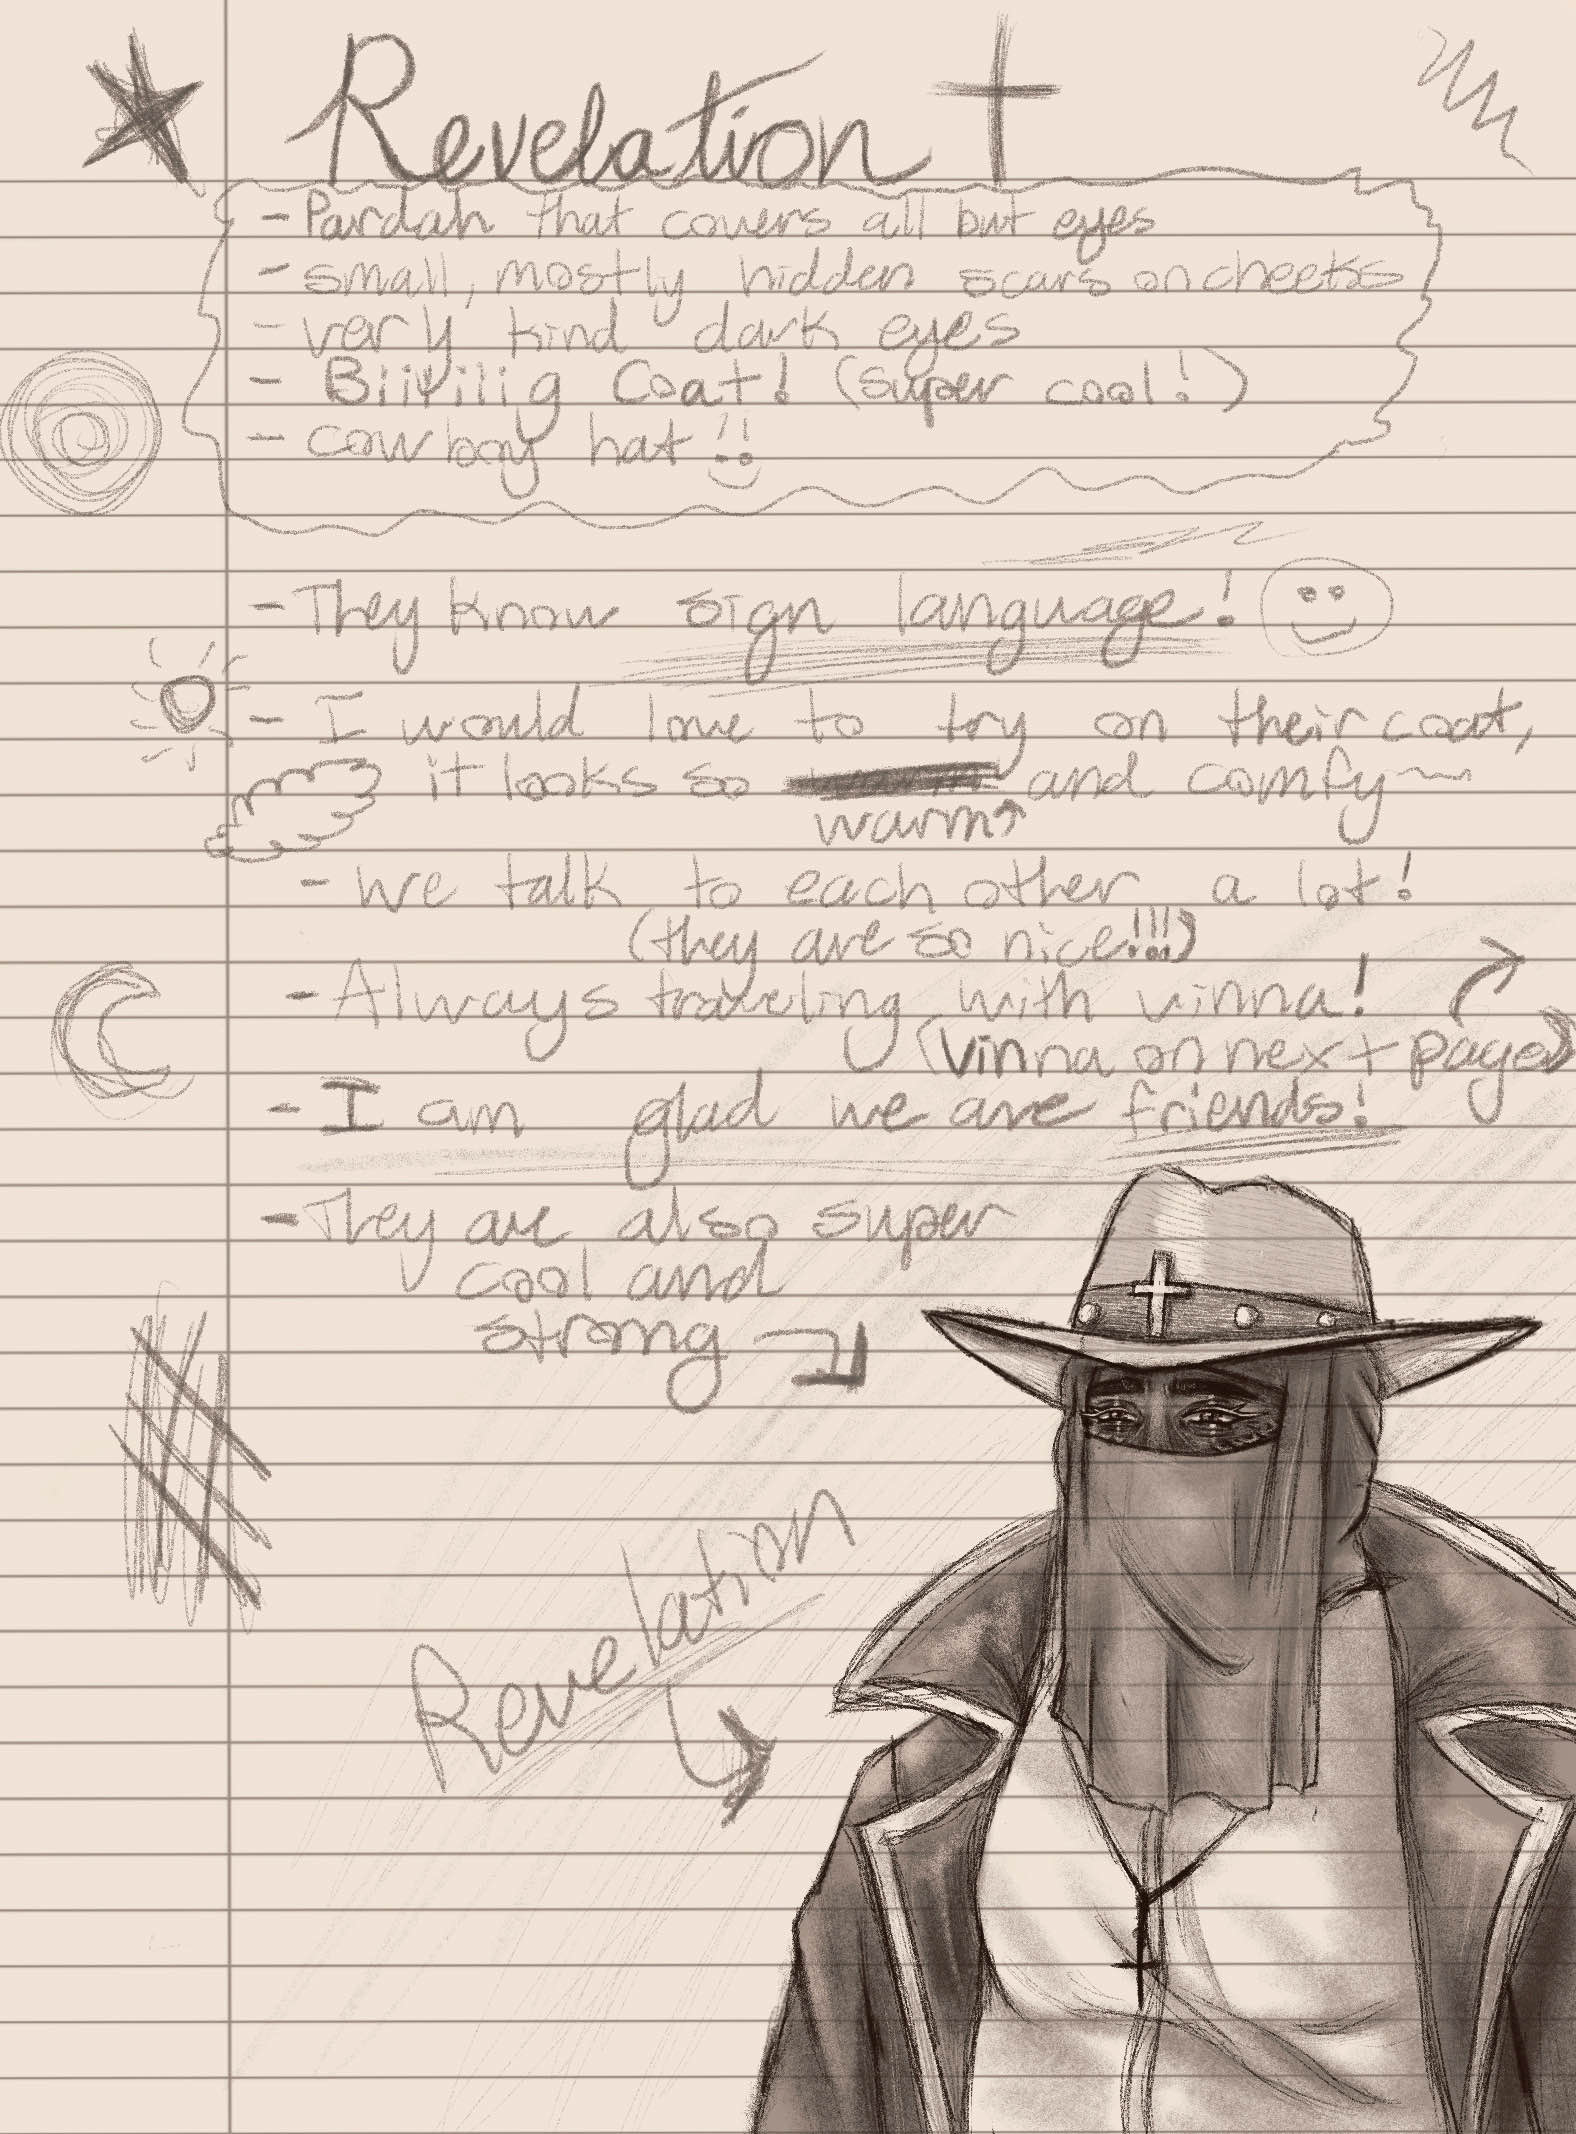 Revelation
- Pardah that covers all but eyes
- small, mostly hidden scars on cheeks
- very kind dark eyes
- Biiiiiig Coat! (super cool!)
- cowboy hat!!
- They know sign language!
- I would love to try on their coat,
it looks so and comfy~
warm↑
- we talk to each other a lot!
(they are so nice!!!)
- Always traveling with vinna!
(vinna on next page)
- I am glad we are friends!
- They are also super
cool and
strong
Revelation